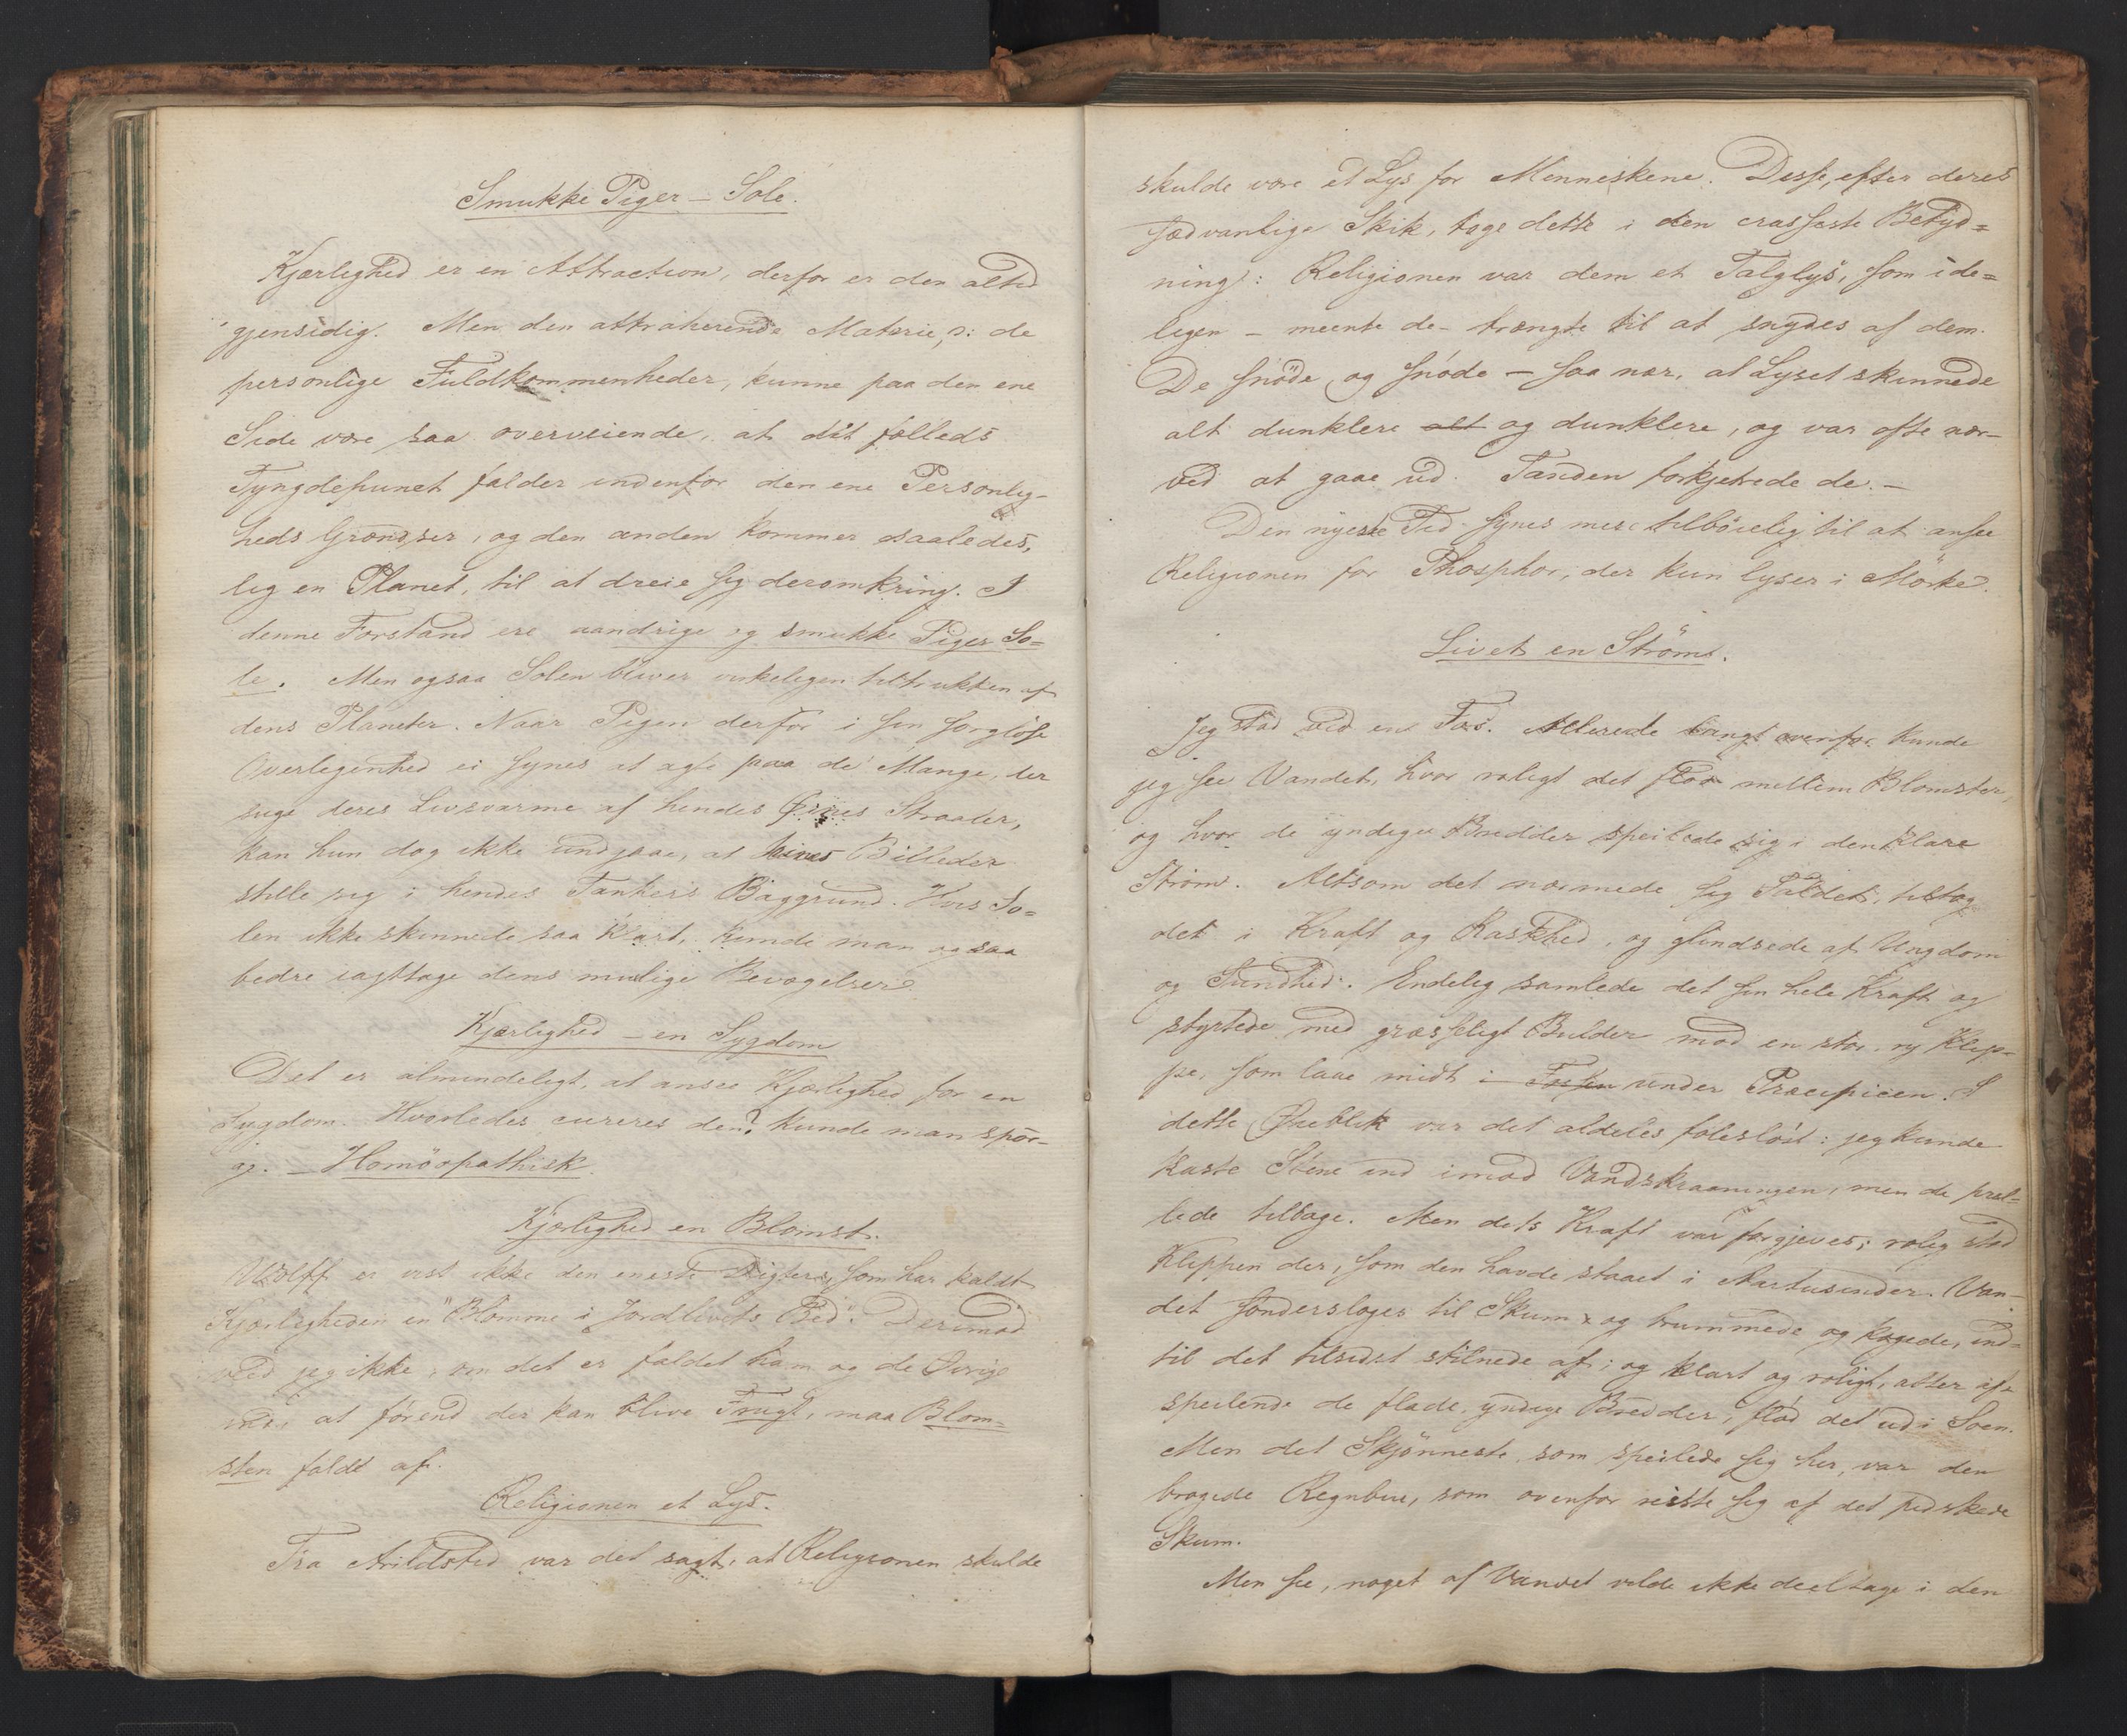 Smukke Piger – Sole.
Kjærlighed er en Attraction, derfor er den altid
gjensidig. Men den attraherende Materie, ɔ: de
personlige Fuldkommenheder, kunne paa den ene
Side være saa overveiende, at dit fælleds
Tyngdepunct falder indenfor den ene Personlig-
heds Grændser, og den anden kommer saaledes,
lig en Planet, til at dreie sig deromkring. I
denne Forstand ere aandrige og smukke Piger So=
le. Men ogsaa Solen bliver virkeligen tiltrukken af
dens Planeter. Naar Pigen derfor i sin sorgløse
Overlegenhed ei synes at agte paa de Mange, der
suge deres Livsvarme af hendes Øines Straaler,
kan hun dog ikke undgaae, at hines Billeder
stille sig i hendes Tankers Baggrund. Hvis So=
len ikke skinnede saa klart, kunde man ogsaa
bedre iagttage dens mulige Bevægelser.
Kjærlighed – en Sygdom
Det er almindeligt, at ansee Kjærlighed for en
Sygdom. Hvorledes cureres den? kunde man spør-
ge. – Homöopathisk.
Kjærlighed en Blomst.
Wolff er vist ikke den eneste Digter, som har kaldt
Kjærligheden en "Blomme i Jordlivets Bed". Derimod
veed jeg ikke, om det er faldet ham og de Øvrige
ind, at førend der kan blive Frugt, maa Blom=
sten falde af.
Religionen et Lys.
Fra Arildstid var det sagt, at Religionen skulde
skulde være et Lys for Menneskene. Disse, efter deres
sædvanlige Skik, toge dette i den crasseste Betyd=
ning: Religionen var dem et Talglys, som ide=
ligen – meente de – trængte til at snydes af dem.
De snøde og snøde – saa nær, at Lyset skinnede
alt dunklere alt og dunklere, og var ofte nær-
ved at gaae ud. Tanden forkjetrede de. –
Den nyeste Tid synes mere tilbøielig til at ansee
Religionen for Phosphor, der kun lyser i Mörke.
Livet en Ström.
Jeg stod ved en Fos. Allerede langt ovenfor kunde
jeg see Vandet, hvor roligt det flød mellem Blomster,
og hvor de yndige Bredder speilede sig i den klare
Strøm. Altsom det nærmede sig Faldet, tiltog
det i Kraft og Raskhed, og glindsede af Ungdom
og Sundhed. Endelig samlede det sin hele Kraft og
styrtede med græsseligt Bulder mod en stor, ny Klip-
pe, som laae midt i Fossen under Præcipicen. I
dette Øieblik var det aldeles føleslöst: jeg kunde
kaste Stene ind imod Vandskraaningen, men de pral-
lede tilbage. Men dets Kraft var forgjeves; rolig stod
Klippen der, som den havde staaet i Aartusender. Van-
det sønderslages til Skum og brummede og kogede, ind=
til det tilsidst stilnede af; og klart og roligt, atter af-
speilende de flade, yndige Bredder, flød det ud i Søen.
Men det Skjønneste, som speilede sig her, var den
brogede Regnbue, som ovenfor reiste sig af det pidskede
Skum.
Men see, noget af Vandet vilde ikke deeltage i den